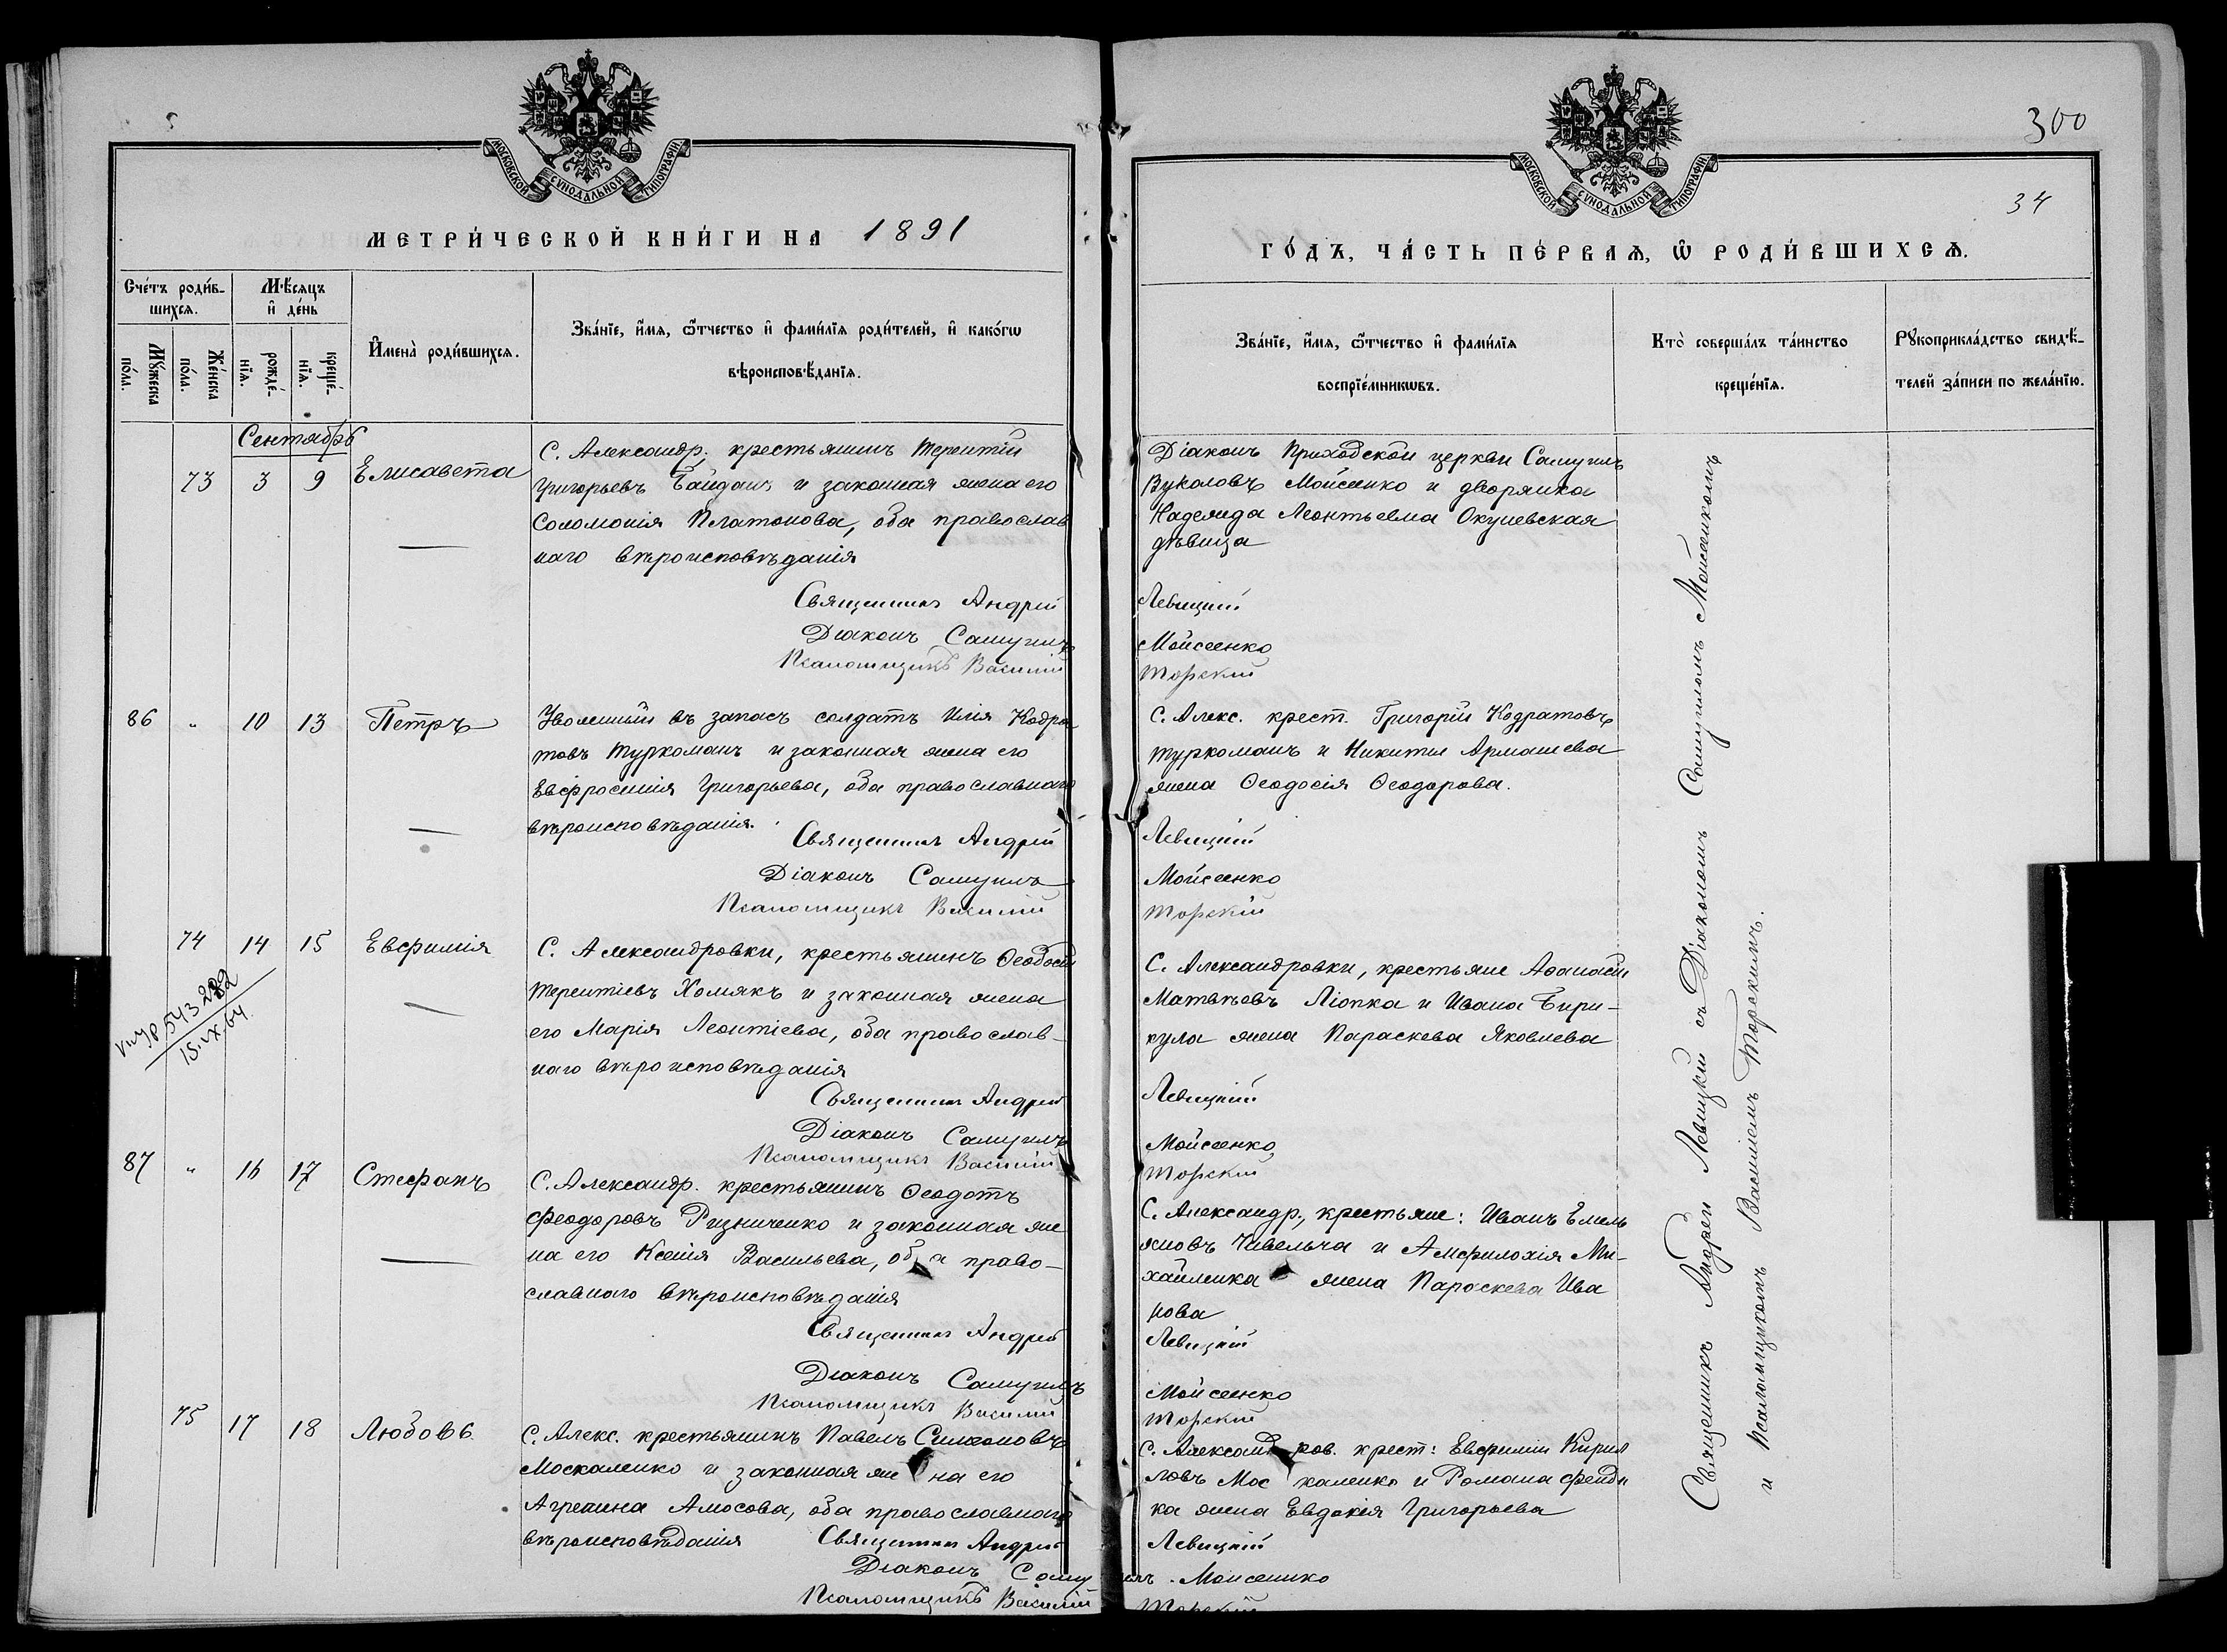 МОСКОВСКОЙ СѴНОДАЛЬНОЙ ТИПОГРАФІИ
МЕТРИ́ЧЕСКОЙ КНИ́ГИ НА 1891
Сче́тъ роди́в-
шихсѧ.
Мѣ́сяцъ
и҆ де́нь
Мꙋ́жеска
по́ла.
Же́нска
по́ла.
рожде́-
нїѧ.
креще́-
нїѧ.
И҆мена̀ роди́вшихсѧ.
Зва́нїе, и҆́мѧ, ѻ҆́тчество и҆ фами́лїѧ роди́телей, и҆ како́гѡ
вѣроисповѣ́данїѧ.
Сентябрь
73 3 9 Елисавета
С. Александр. крестьянинъ Терентій
Григорьевъ Байданъ и законная жена его
Соломонія Платонова, оба православ
наго вѣроисповѣданія
Священникъ Андрей
Діаконъ Самуилъ
Псаломщикъ Василій
86 „ 10 13 Петръ
Уволенный въ запасъ солдатъ Илія Кодра
товъ Туркоманъ и законная жена его
Евфросинія Григорьева, оба православнаго
вѣроисповѣданія.
Священникъ Андрей
Діаконъ Самуилъ
Псаломщикъ Василій
74 14 15 Евфимія
С. Александровки, крестьянинъ Ѳеодосій
Терентіевъ Хомякъ и законная жена
его Марія Леонтіева, оба православ-
наго вѣроисповѣданія
Священникъ Андрей
Діаконъ Самуилъ
Псаломщикъ Василій
87 „ 16 17 Стефанъ
С. Александр. крестьянинъ Ѳеодотъ
Феодоровъ Ризниченко и законная же
на его Ксенія Васильева, оба право-
славного вѣроисповѣданія
Священникъ Андрей
Діаконъ Самуилъ
Псаломщикъ Василій
75 17 18 Любовь
С. Алекс. крестьянинъ Павелъ Симеоновъ
Москаленко и законная жена его
Агрепина Амосова, оба православнаго
вѣроисповѣданія Священникъ Андрей
Діаконъ Самуилъ
Псаломщикъ Василій
300
34
МОСКОВСКОЙ СѴНОДАЛЬНОЙ ТИПОГРАФІИ
ГО́ДЪ, ЧА́СТЬ ПЕ́РВАѦ, Ѽ РОДИ́ВШИХСѦ.
Зва́нїе, и҆́мѧ, ѻ҆́тчество и҆ фами́лїѧ
воспрїе́мникѡвъ.
Кто̀ соверша́лъ та́инство
креще́нїѧ.
Рꙋкоприкла́дство свидѣ́-
телей за́писи по жела́нїю.
Діаконъ Приходской церкви Самуилъ
Вуколовъ Мойсеенко и дворянка
Надежда Леонтьевна Окушевская
дѣвица
Левицкій
Мойсеенко
Торскій
С. Алекс. крест. Григорій Кодратовъ
Туркоманъ и Никиты Армашева
жена Ѳеодосія Ѳеодорова.
Левицкій
Мойсеенко
Торскій
С. Александровки, крестьяне Аѳанасій
Матвѣевъ Ліопка и Ивана Бири-
кула жена Параскева Яковлева
Левицкій
Мойсеенко
Торскій
С. Александр., крестьяне: Иванъ Емель
яновъ Чивельча и Амфилохія Ми-
хайленка жена Параскева Ива
нова
Левицкій
Мойсеенко
Торскій
С. Александров. крест: Евфимій Кирил
ловъ Москаленко и Романа Фенди
ка жена Евдокія Григорьева
Левицкій
Мойсеенко
Торскій
Священникъ Андрей Левицкій съ Діакономъ Самуиломъ Мойсеенкомъ
и Псаломщикомъ Василіемъ Торскимъ.